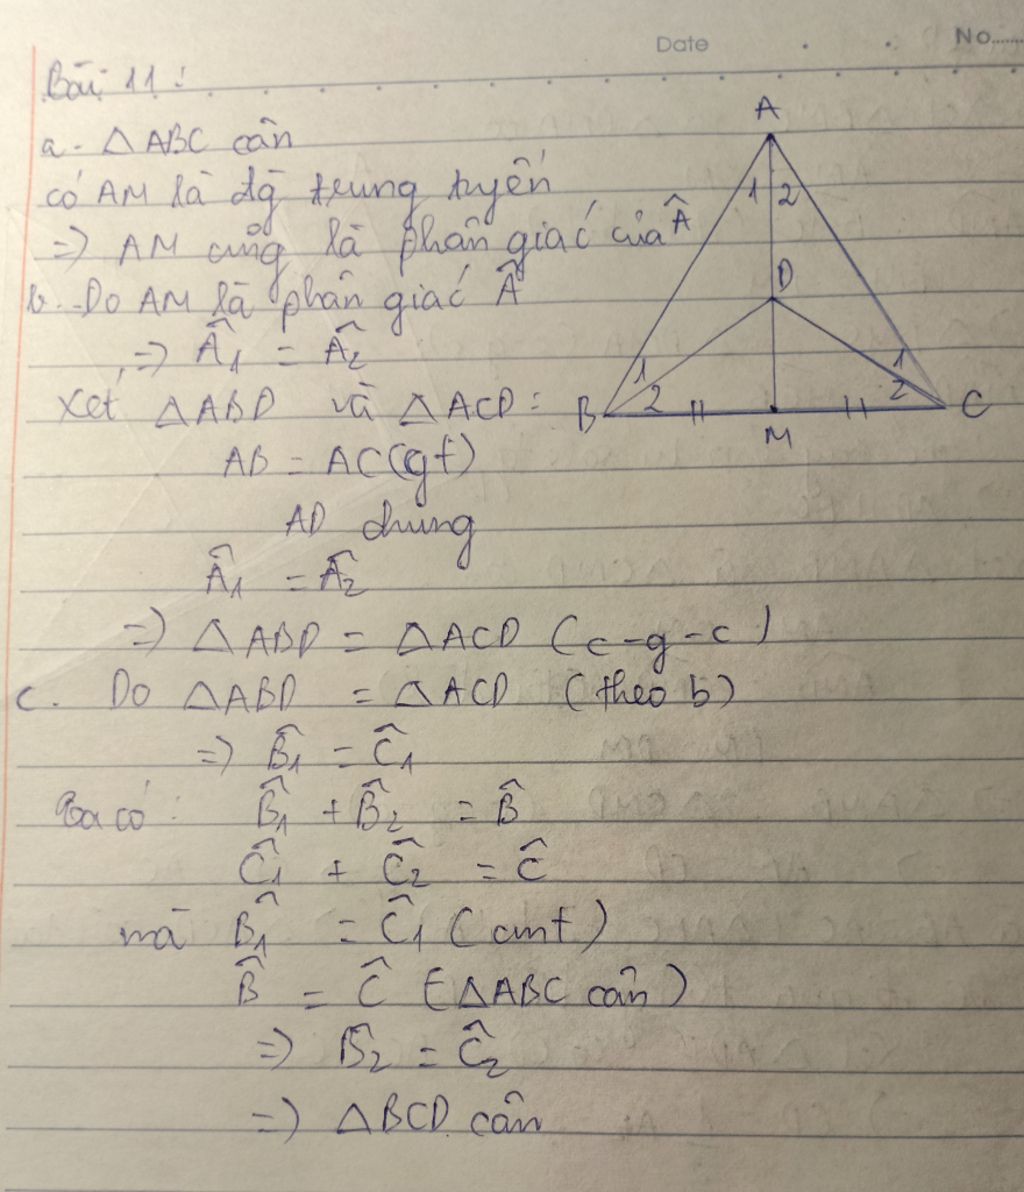 Date
No......
Bài 11 :
a. △ABC cân
có AM là đg trung tuyến
=> AM cũng là phân giác của Â
b. Do AM là phân giác Â
=> Â1 = Â2
Xét △ABD và △ACD :
AB = AC (gt)
AD chung
Â1 = Â2
=> △ABD = △ACD (c-g-c)
c. Do △ABD = △ACD (theo b)
=> B̂1 = Ĉ1
Ta có : B̂1 + B̂2 = B̂
Ĉ1 + Ĉ2 = Ĉ
mà B̂1 = Ĉ1 (cmt)
B̂ = Ĉ (△ABC cân)
=> B̂2 = Ĉ2
=> △BCD cân
A
1 2
D
1 1
B 2 2 C
M